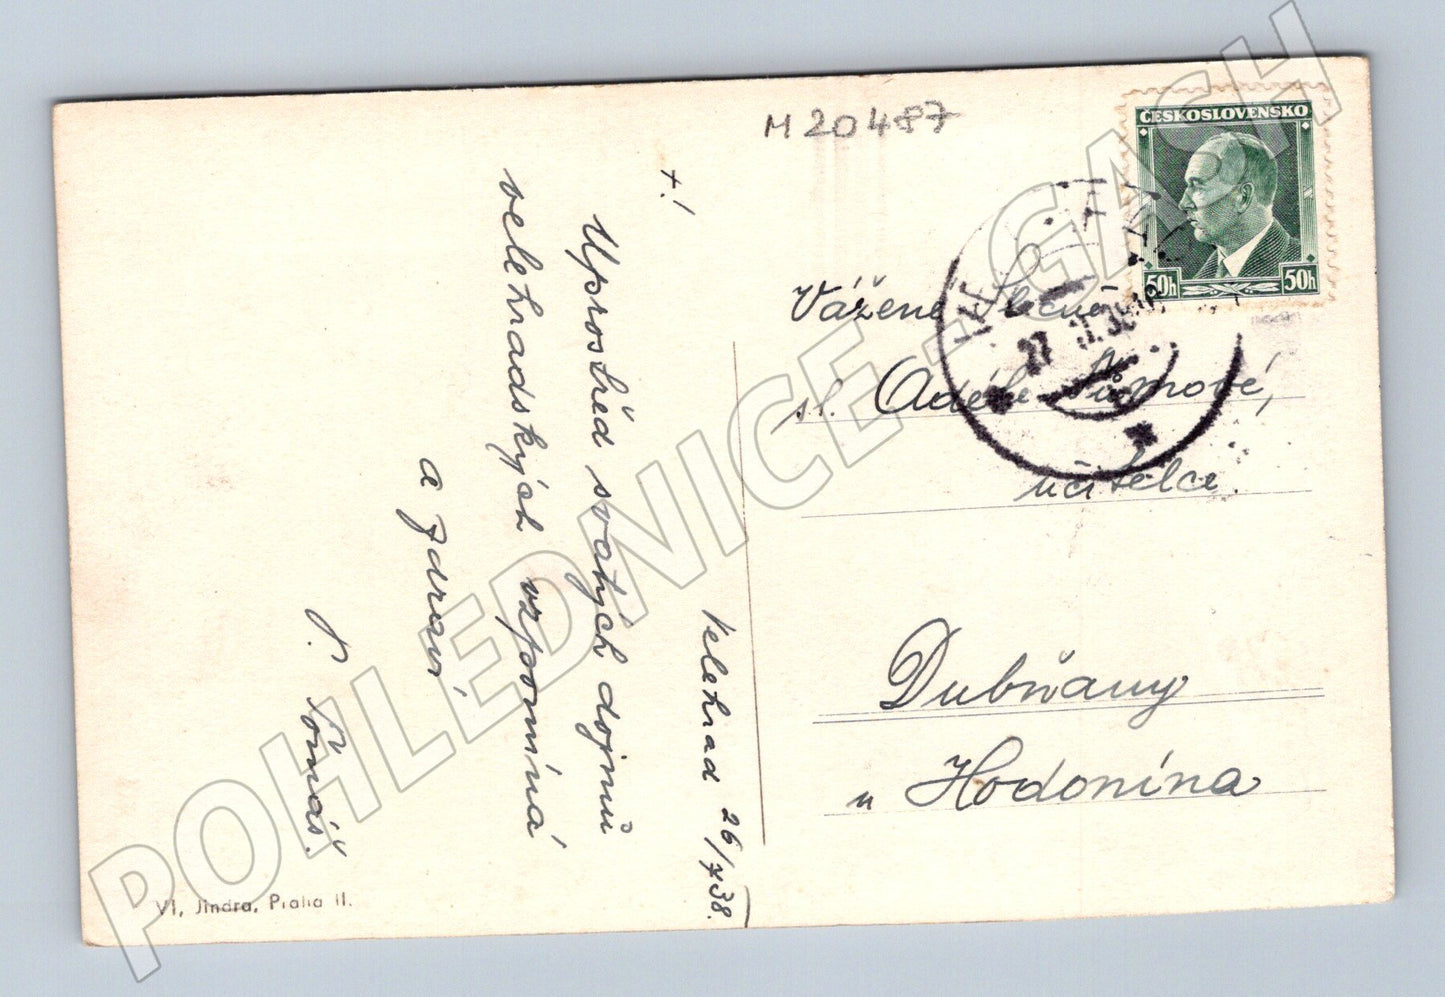 M20487
ČESKOSLOVENSKO
50h 50h
+.!
Velehrad 26/7 38.
Uprostřed svatých dojmů
velehradských vzpomíná
a zdraví
P. Tomáš.
Vážené slečně
sl. Adéle
učitelce
Dubňany
u Hodonína
27 38
Vl. Jindra, Praha II.
POHLEDNICE - GACH